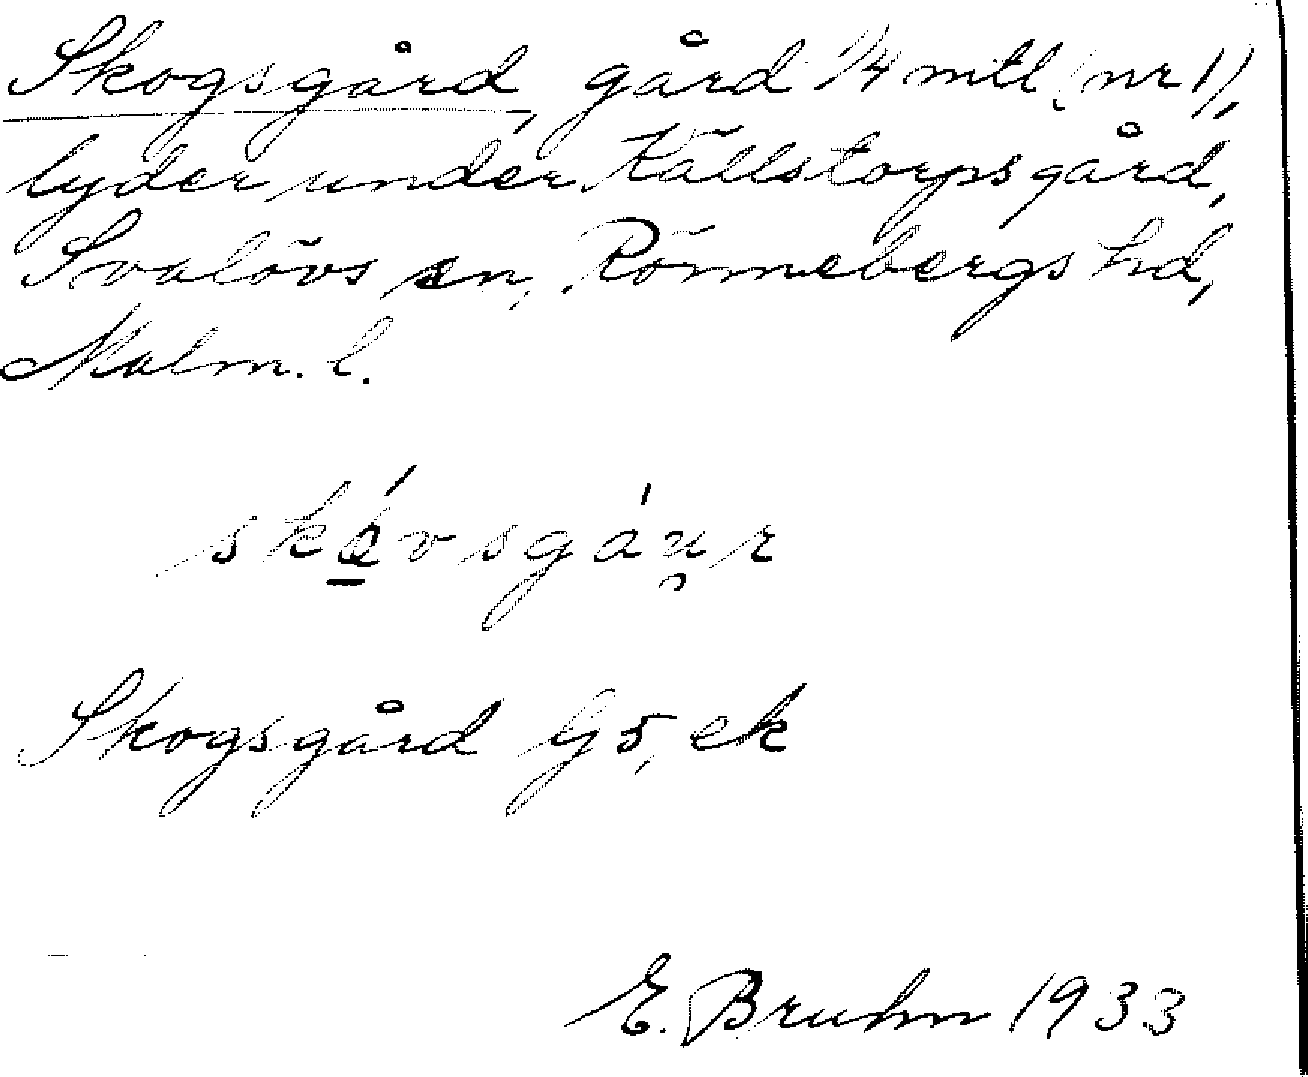 Skogsgård, gård 1/4 mtl (nr 1),
lyder under Källstorpsgård,
Svalövs sn, Rönnebergs hd,
Malm. l.
skó̠vsgáu̯r
Skogsgård G5, ek
E. Bruhn 1933